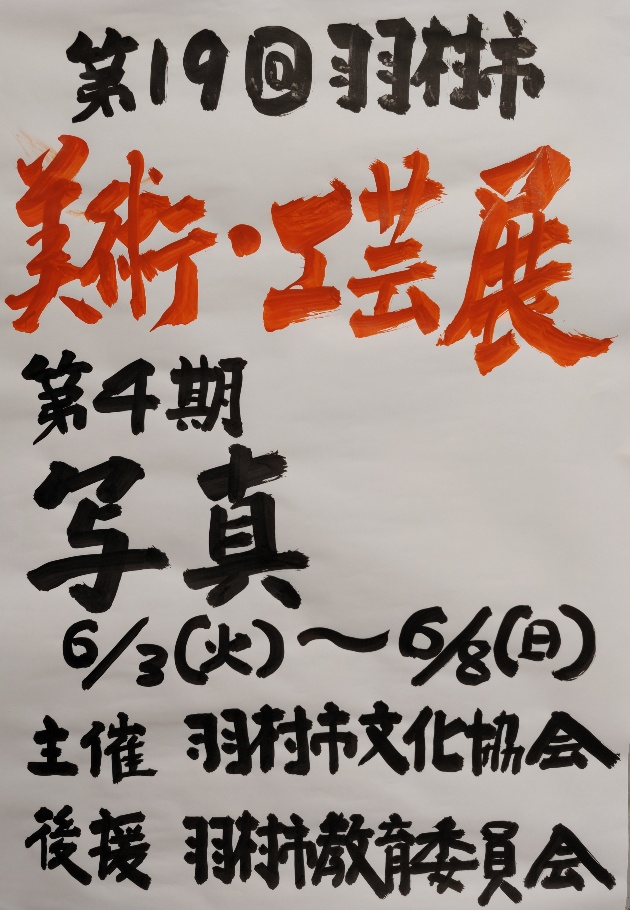 第19回羽村市
美術・工芸展
第4期
写真
6/3(火)〜6/8(日)
主催 羽村市文化協会
後援 羽村市教育委員会